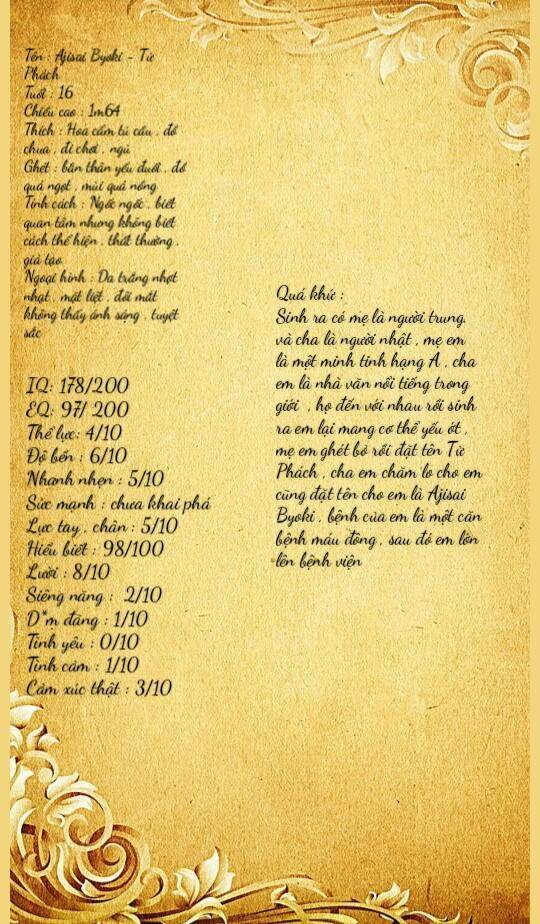 Tên : Ajisai Byoki - Từ
Phách
Tuổi : 16
Chiều cao : 1m64
Thích : Hoa cẩm tú cầu , đồ
chua , đi chơi , ngủ
Ghét : bản thân yếu đuối , đồ
quá ngọt , mùi quá nồng
Tính cách : Ngốc ngốc , biết
quan tâm nhưng không biết
cách thể hiện , thất thường ,
giả tạo
Ngoại hình : Da trắng nhợt
nhạt , mặt liệt , đôi mắt
không thấy ánh sáng , tuyệt
sắc
IQ: 178/200
EQ: 97/ 200
Thể lực: 4/10
Độ bền : 6/10
Nhanh nhẹn : 5/10
Sức mạnh : chưa khai phá
Lực tay , chân : 5/10
Hiểu biết : 98/100
Lười : 8/10
Siêng năng : 2/10
D*m đãng : 1/10
Tình yêu : 0/10
Tình cảm : 1/10
Cảm xúc thật : 3/10
Quá khứ :
Sinh ra có mẹ là người trung
và cha là người nhật , mẹ em
là một minh tinh hạng A , cha
em là nhà văn nổi tiếng trong
giới , họ đến với nhau rồi sinh
ra em lại mang cơ thể yếu ớt ,
mẹ em ghét bỏ rồi đặt tên Từ
Phách , cha em chăm lo cho em
cũng đặt tên cho em là Ajisai
Byoki , bệnh của em là một căn
bệnh máu đông , sau đó em lớn
lên bệnh viện